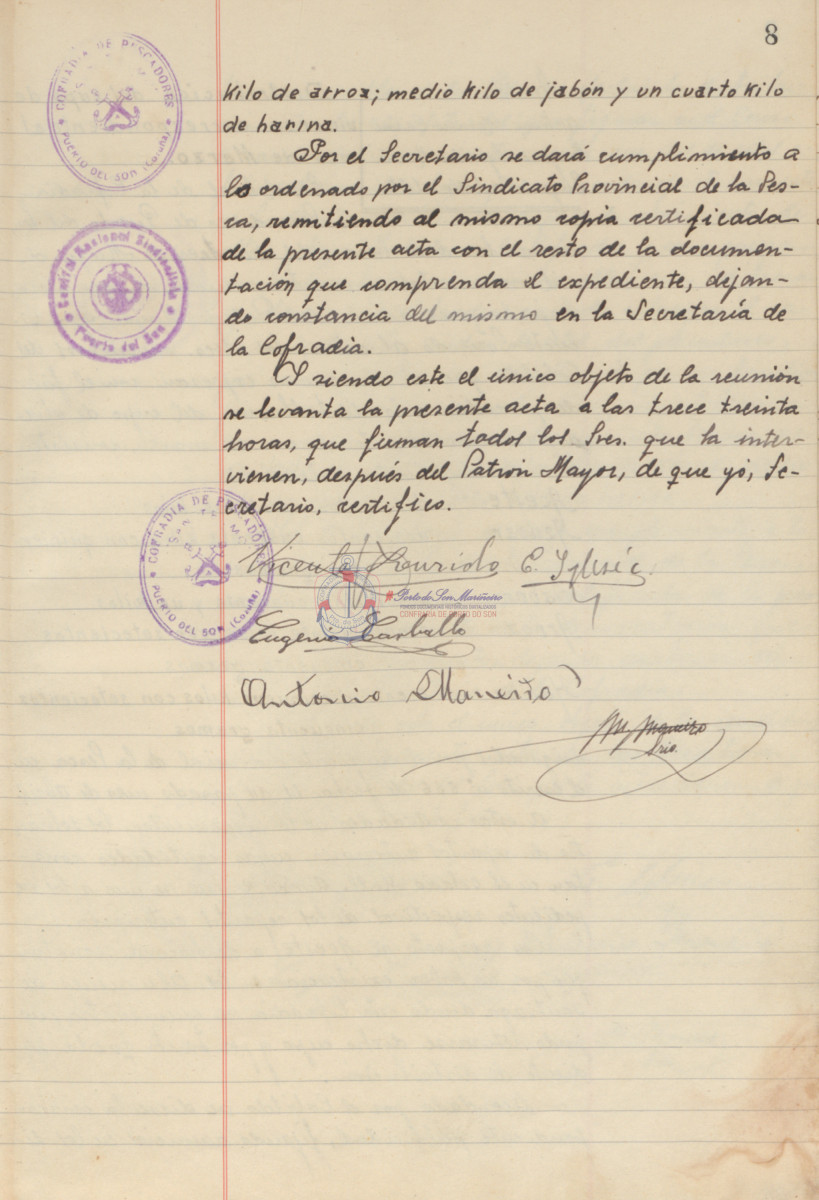 8
COFRADIA DE PESCADORES
PUERTO DEL SON (Coruña)
kilo de arroz; medio kilo de jabón y un cuarto kilo
de harina.
Por el Secretario se dará cumplimiento a
lo ordenado por el Sindicato Provincial de la Pes-
ca, remitiendo al mismo copia certificada
de la presente acta con el resto de la documen-
tación que comprenda el expediente, dejan-
do constancia del mismo en la Secretaría de
la Cofradía.
Central Nacional Sindicalista
Puerto del Son
Y siendo este el único objeto de la reunión
se levanta la presente acta a las trece treinta
horas, que firman todos los Sres. que la inter-
vienen, después del Patrón Mayor, de que yo, Se-
cretario, certifico.
COFRADIA DE PESCADORES
SAN TELMO
PUERTO DEL SON (Coruña)
Vicente Lourido E. Iglesias
Porto do Son Mariñeiro
FONDOS DOCUMENTAIS HISTÓRICOS DIXITALIZADOS
CONFRARÍA DE PORTO DO SON
Eugenio Carballo
Antonio Maneiro
M. Maneiro
Srio.